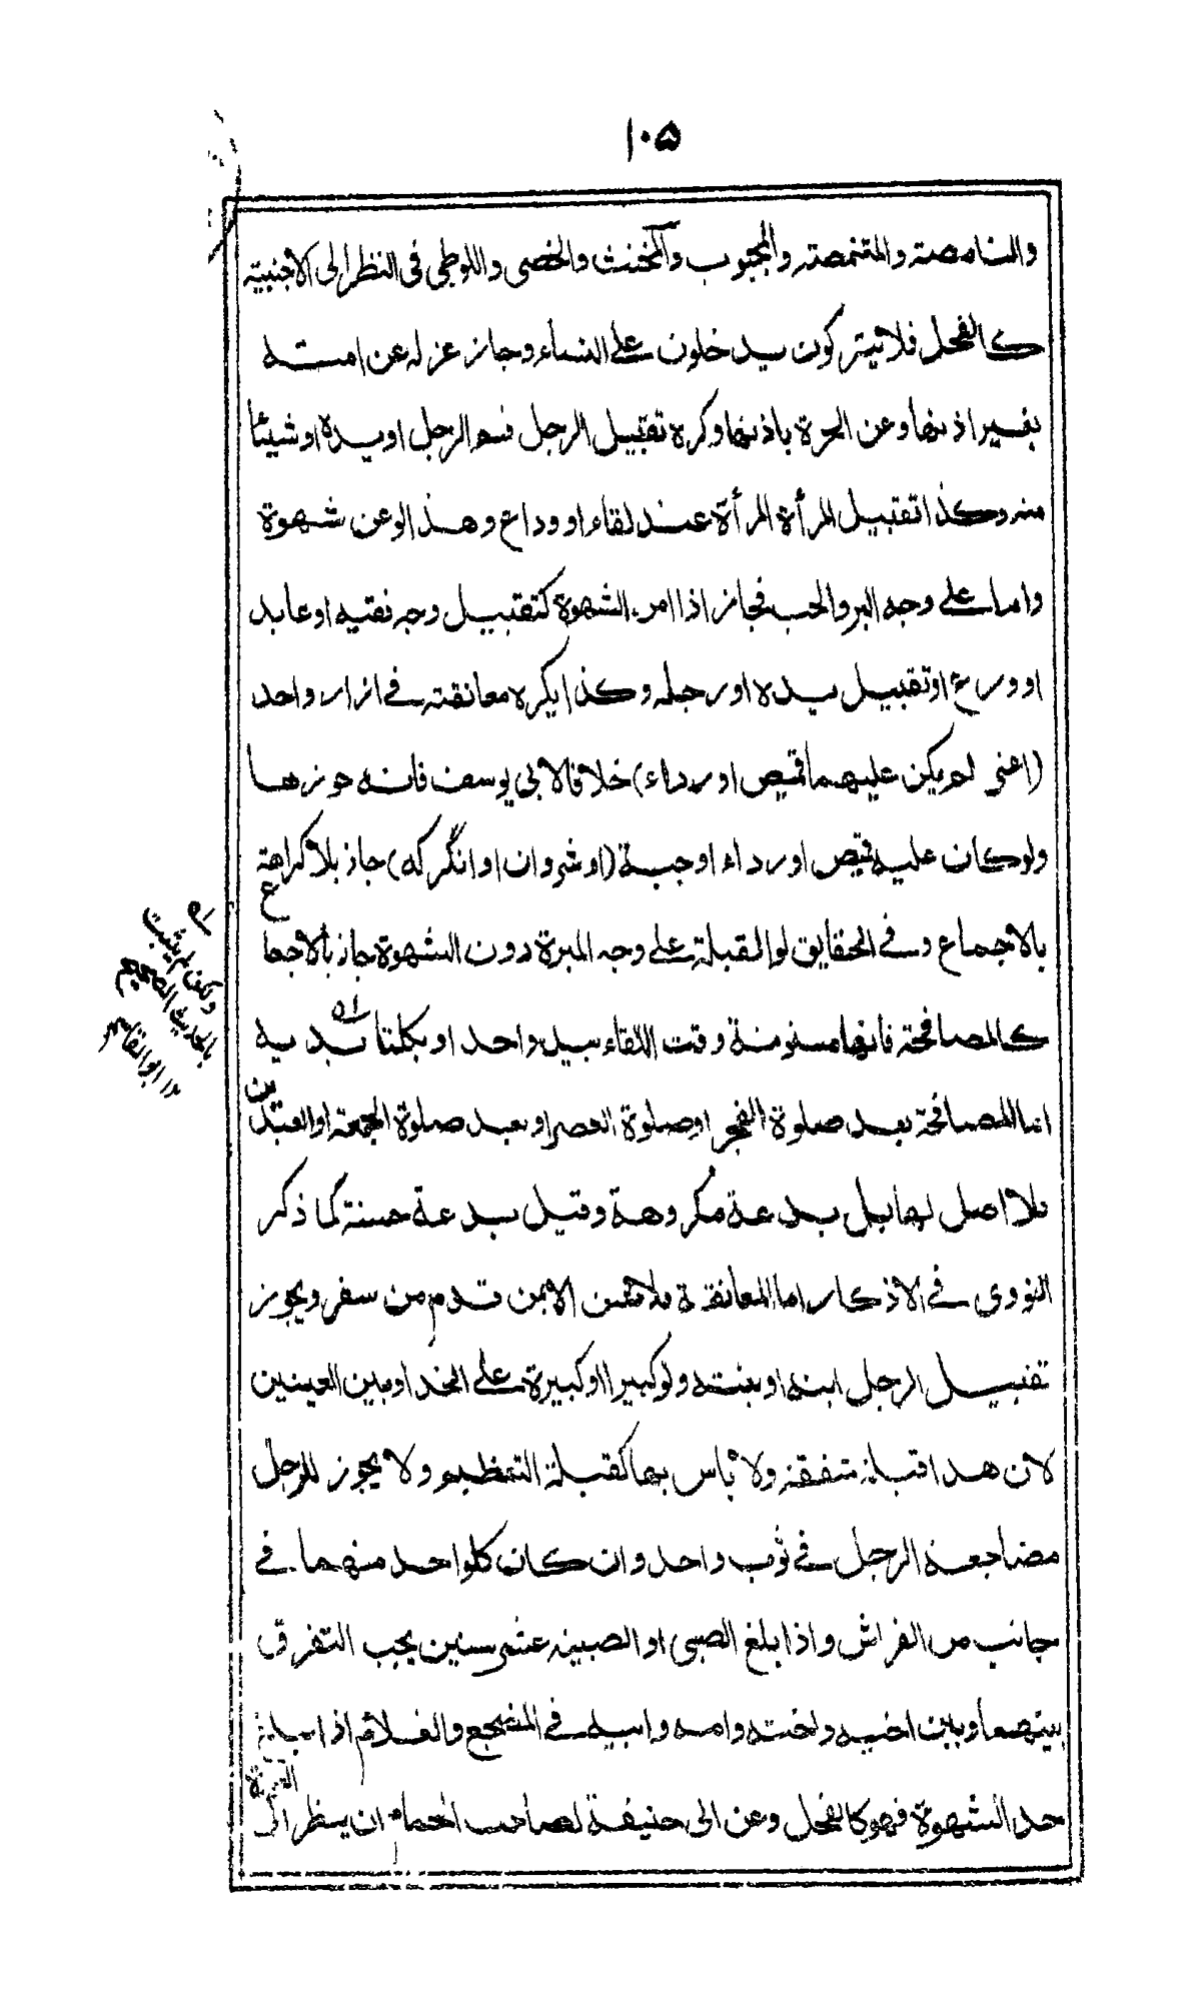 ١٠٥
والنامصة والمتنمصة والمجبوب والمخنث والخصى واللوطى فى النظر الى الاجنبية
كالفحل فلا يتركون يدخلون على النساء وجاز عزله عن امته
بغير اذنها وعن الحرة باذنها وكره تقبيل الرجل فم الرجل او يده او شيئا
منه وكذا تقبيل المرأة المرأة عند لقاء او وداع وهذا لو عن شهوة
واما على وجه البر والحب فجائز اذا امن الشهوة كتقبيل وجه فقيه او عابد
او ورع او تقبيل يده او رجله وكذا يكره معانقته فى ازار واحد
(اعنى لم يكن عليهما قميص او رداء) خلافا لابى يوسف فانه جوزها
ولو كان عليه قميص او رداء او جبة (او شروان او انگركه) جاز بلا كراهة
بالاجماع وفى الحقايق لو القبلة على وجه المبرة دون الشهوة جاز بالاجماع
كالمصافحة فانها مسنونة وقت اللقاء بيد واحد او بكلتا يديه
اما المصافحة بعد صلوة الفجر او صلوة العصر او بعد صلوة الجمعة او العيدين
فلا اصل لها بل بدعة مكروهة وقيل بدعة حسنة كما ذكر
النووى فى الاذكار اما المعانقة فلا تسن الا لمن قدم من سفر ويجوز
تقبيل الرجل ابنه او بنته ولو كبيرا او كبيرة على الخد او بين العينين
لان هذا قبلة شفقة ولا باس بها كقبلة التعظيم ولا يجوز للرجل
مضاجعة الرجل فى ثوب واحد وان كان كلواحد منهما فى
جانب من الفراش واذا بلغ الصبى او الصبية عشر سنين يجب التفرق
بينهما وبين اخيه واخته وامه وابيه فى المضجع والغلام اذا بلغ
حد الشهوة فهو كالفحل وعن ابى حنيفة لصاحب الحمام ان ينظر الى
ولكن لم يثبت
بالحديث الصحيح
١٢ ابو القاسم